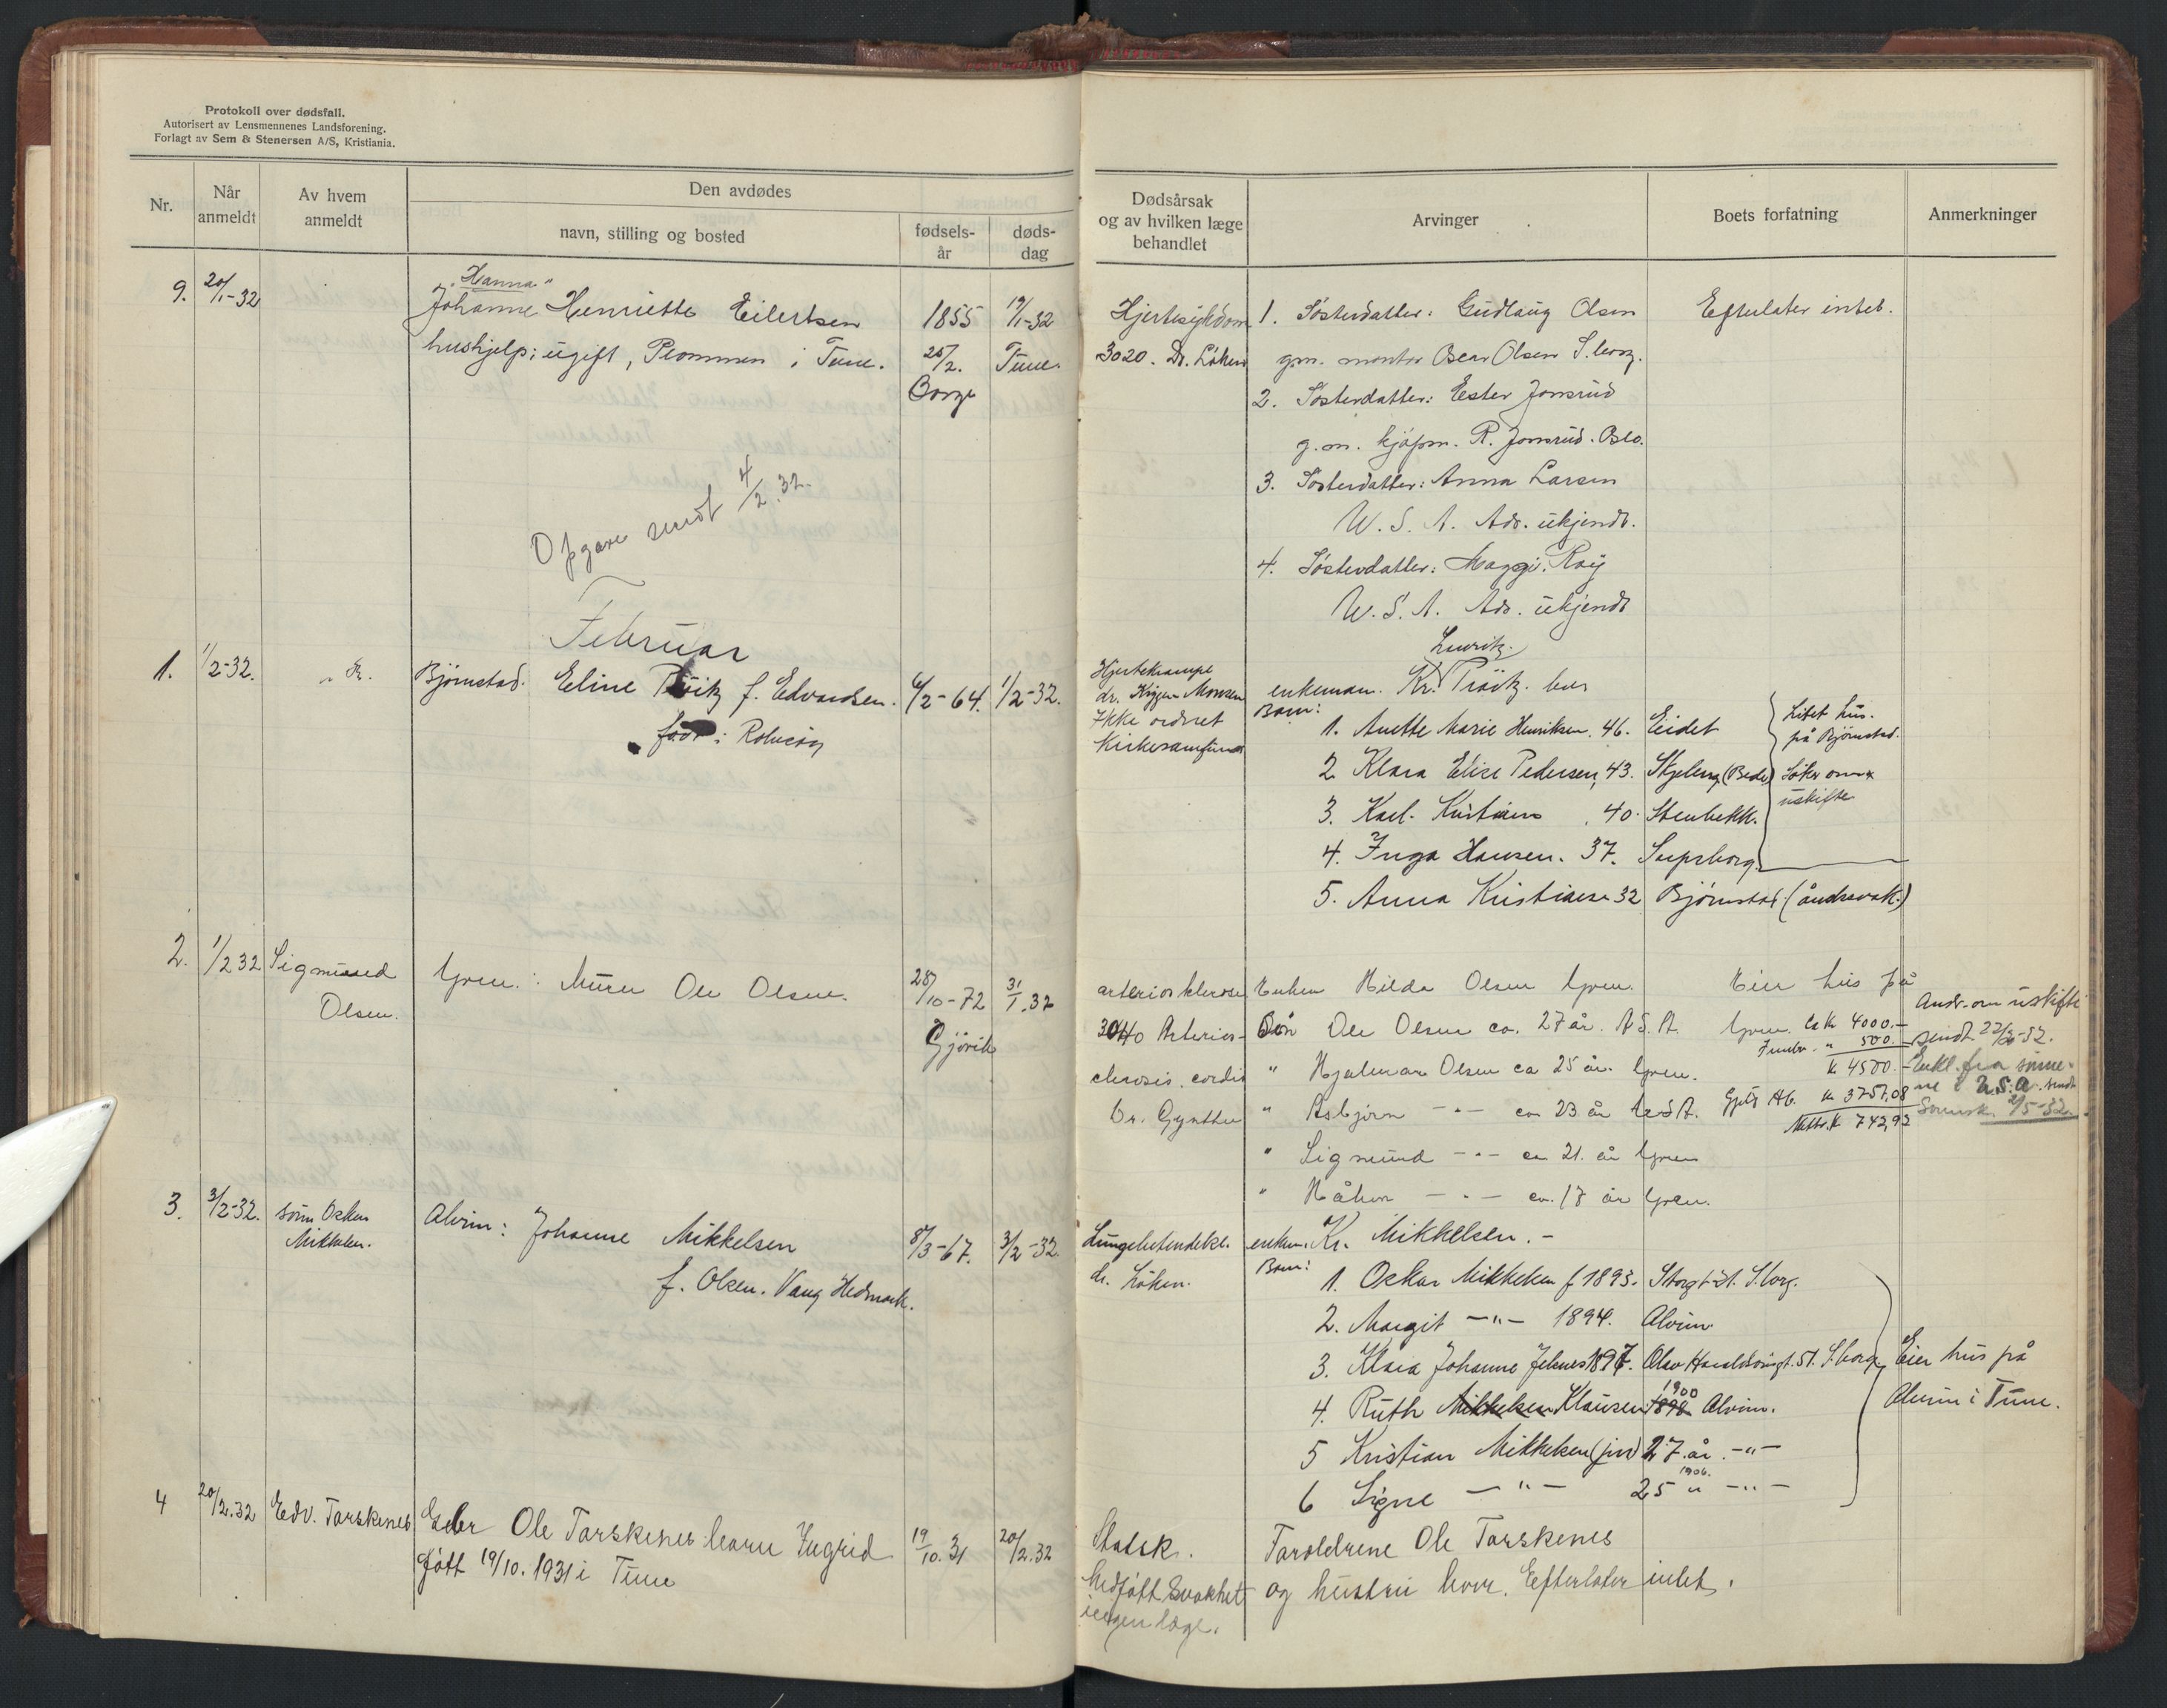 Protokoll over dødsfall.
Autorisert av Lensmennenes Landsforening.
Forlagt av Sem & Stenersen A/S, Kristiania.
Nr.
Når
anmeldt
Av hvem
anmeldt
Den avdødes
navn, stilling og bosted
fødsels-
år
døds-
dag
Dødsårsak
og av hvilken læge
behandlet
Arvinger
Boets forfatning
Anmerkninger
9. 20/1-32
"Hanna"
Johanne Henriette Eilertsen
hushjelp, ugift, Plommen i Tune.
1855
25/2.
Borge
19/1-32
Tune.
Hjertesykdom
3020. Dr. Løken
1. Søsterdatter: Gudlaug Olsen
gm. montør Oscar Olsen S.borg.
2. Søsterdatter: Ester Jonsrud
g.m. kjøpm. R. Jonsrud. Oslo.
3. Søsterdatter: Anna Larsen
U.S.A. Adr. ukjendt.
4. Søsterdatter: Maggi Roy
U.S.A. Adr. ukjendt
Efterlater intet.
Opgave sendt 4/2.32.
Februar
1. 1/2-32.
Bjørnstad. Eline f. Edvardsen.
født i Rolvsøy
6/2-64. 1/2-32.
Hjertekrampe
dr. Monsen
Ikke ordnet
Kirkesamfund
Lauritz
enkeman. Kr.
Barn:
1. Anette Marie Henriksen. 46. Eidet
2 Klara Elise Pedersen, 43. Skjeberg
3. Karl Kristiansen 40. Stenbekk.
4. Inga Hansen. 37. Sarpsborg.
5. Anna Kristiansen 32 Bjørnstad (åndssvak.)
Litet hus.
på Bjørnstad.
Søker om
uskifte
2. 1/2 32 Sigmund
Olsen.
Murer Ole Olsen.
28/10-72
Gjøvik
31/1.32
arteriosklerose
3040 Arterios-
clerosis cordis
Dr. Gynther
Enken Hilda Olsen
Søn Ole Olsen ca. 27 år. U.S.A.
" Hjalmar Olsen ca 25 år.
" Asbjørn -"- ca 23 år U.S.A.
" Sigmund -"- ca 21. år
" Håkon -"- ca. 17 år
Eier hus på
ca kr 4000.-
Innbo. " 500.-
kr 4500.-
Gjeld kr 3757,08
Netto. kr 742,92
Andr. om uskifte
sendt 22/2-32.
Erkl. fra sønne-
ne i U.S.A. sendt
2/5-32.
3. 3/2-32. sønn Oskar
Mikkelsen.
Alvim: Johanne Mikkelsen
f. Olsen. Vang Hedmark.
8/3-67. 3/2-32
Lungebetendelse.
dr. Løken.
enkem. Kr. Mikkelsen.-
Barn:
1. Oskar Mikkelsen f 1893. Storgt 21. S.borg.
2. Margit -"- 1894. Alvim.
3. Klara Johanne 1897. Olav Haraldsønsgt. 51. S.borg
4. Ruth Mikkelsen Klausen 1898 1900 Alvim.
5 Kristian Mikkelsen (jun) 27 år. -"-
6 Signe -"- 25 " 1906. -"-
Eier hus på
Alvim i Tune.
4 20/2.32 Edv. Torskenes
Ole Torskenes barn Ingrid
født 19/10.1931 i Tune
19/10.31 20/2.32
Medfødt svakhet
ingen læge.
Foreldrene Ole Torskenes
og hustru lever. Efterlater intet.